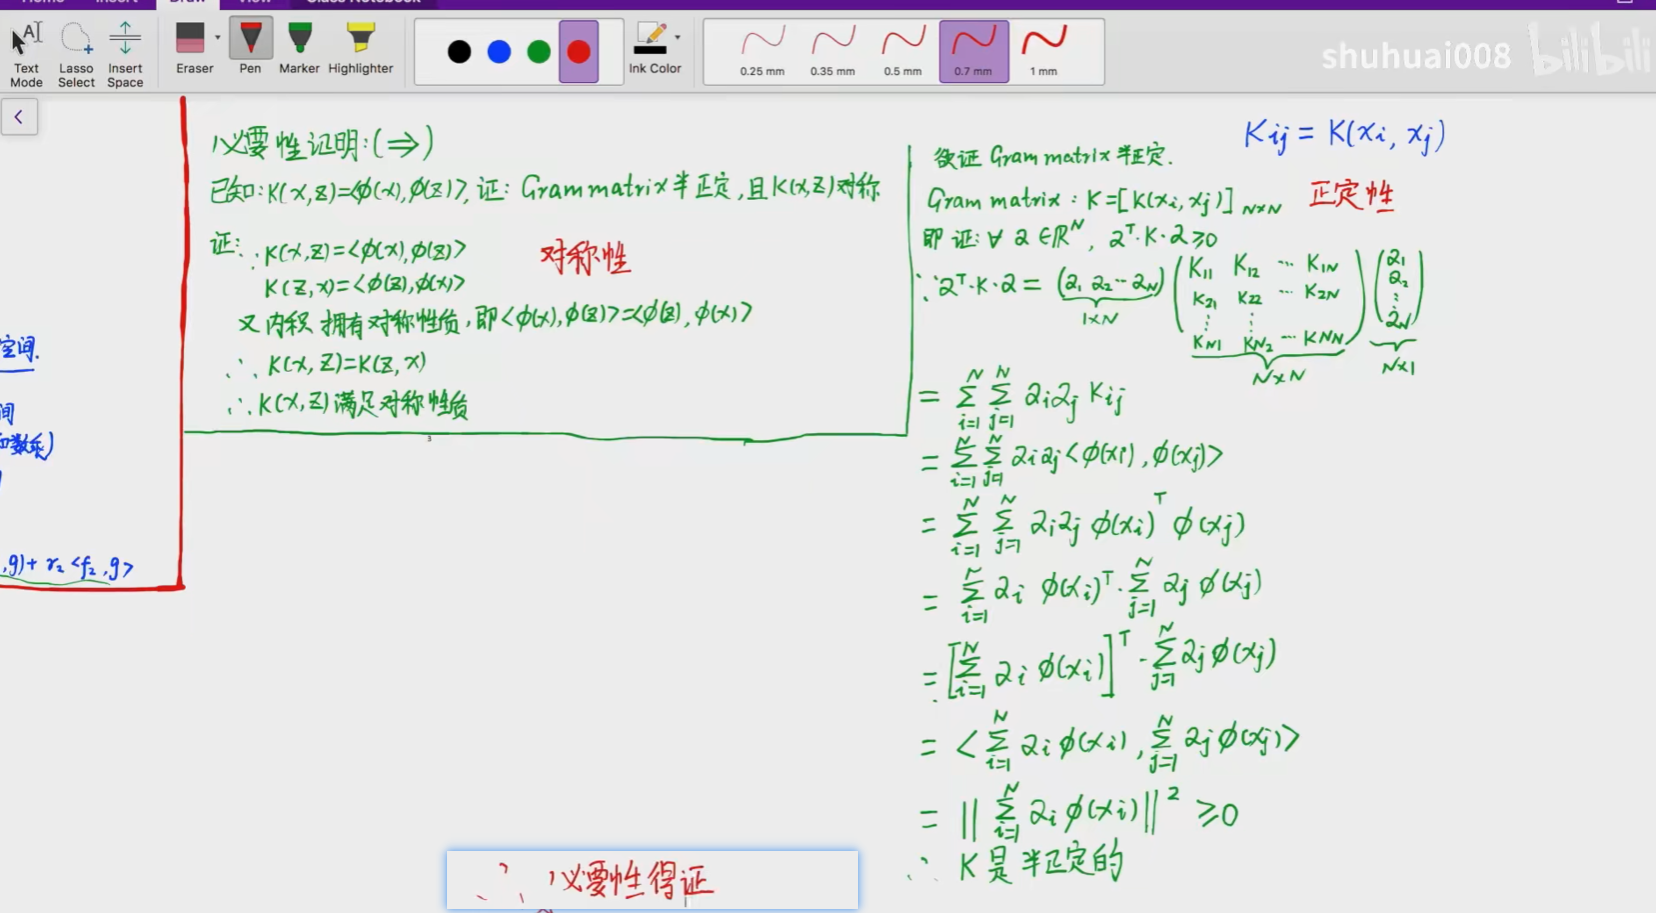 Home Insert Draw View Class Notebook
Text Mode
Lasso Select
Insert Space
Eraser
Pen
Marker
Highlighter
Ink Color
0.25 mm
0.35 mm
0.5 mm
0.7 mm
1 mm
shuhuai008 bilibili
必要性证明:(⇒)
已知:K(x,z)=<φ(x),φ(z)>,证:Gram matrix半正定,且K(x,z)对称
证:∵K(x,z)=<φ(x),φ(z)>
K(z,x)=<φ(z),φ(x)>
对称性
又内积拥有对称性质,即<φ(x),φ(z)>=<φ(z),φ(x)>
∴K(x,z)=K(z,x)
∴K(x,z)满足对称性质
3
空间.
间
和数乘)
,g)+r₂<f₂,g>
Kij=K(xi,xj)
欲证Gram matrix半正定.
Gram matrix:K=[K(xi,xj)]N×N
正定性
即证:∀α∈ℝᴺ, αᵀ·K·α≥0
∵αᵀ·K·α=(α₁ α₂ ··· αN) (K₁₁ K₁₂ ··· K₁N (α₁
K₂₁ K₂₂ ··· K₂N α₂
⋮ ⋮ ⋮
KN₁ KN₂ ··· KNN) αN)
1×N
N×N
N×1
=∑ᵢ₌₁ᴺ∑ⱼ₌₁ᴺ αiαj Kij
=∑ᵢ₌₁ᴺ∑ⱼ₌₁ᴺ αiαj<φ(xi),φ(xj)>
=∑ᵢ₌₁ᴺ∑ⱼ₌₁ᴺ αiαj φ(xi)ᵀφ(xj)
=∑ᵢ₌₁ᴺ αi φ(xi)ᵀ·∑ⱼ₌₁ᴺ αj φ(xj)
=[∑ᵢ₌₁ᴺ αi φ(xi)]ᵀ·∑ⱼ₌₁ᴺ αj φ(xj)
=<∑ᵢ₌₁ᴺ αi φ(xi),∑ⱼ₌₁ᴺ αj φ(xj)>
=||∑ᵢ₌₁ᴺ αi φ(xi)||²≥0
∴K是半正定的
∴必要性得证